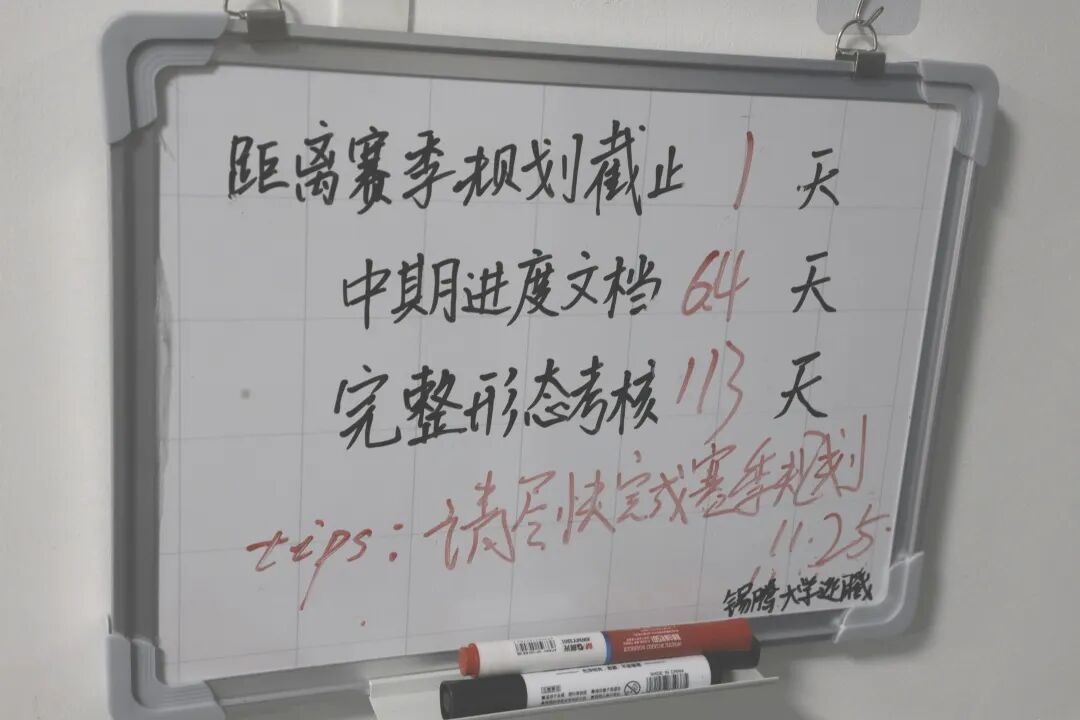 距离赛季规划截止 1 天
中期进度文档 64 天
完整形态考核 113 天
tips：请尽快完成赛季规划
11.25.
锡腾大学进臧